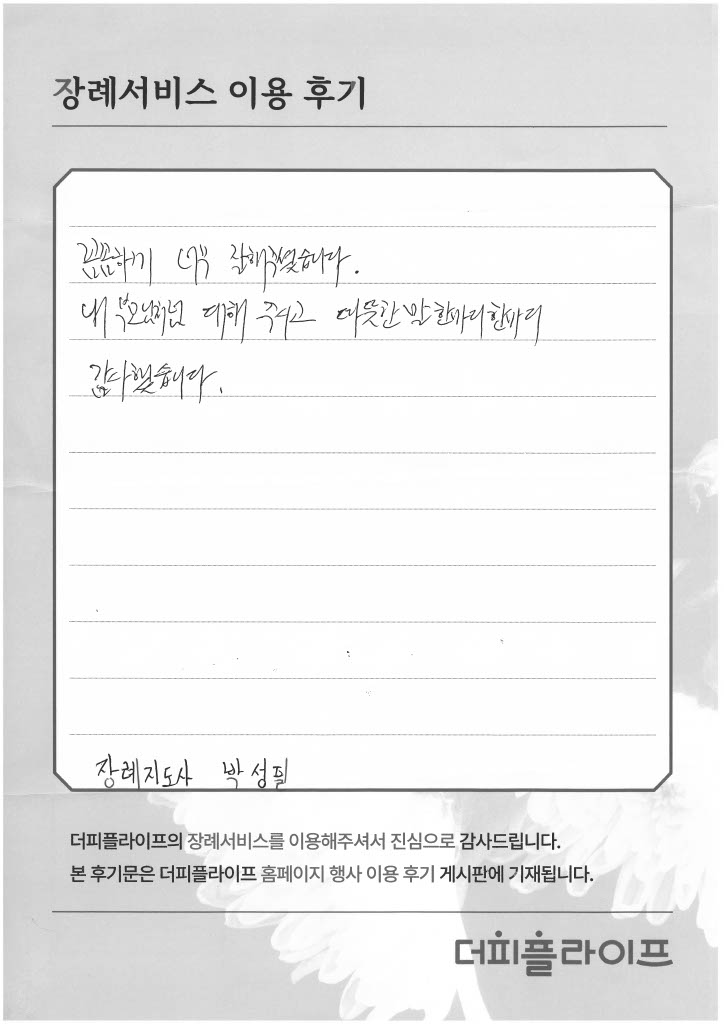 장례서비스 이용 후기
꼼꼼하게 너무 잘해주셨습니다.
내 부모님처럼 대해 주시고 따뜻한 말 한마디 한마디
감사했습니다.
장례지도사 박성필
더피플라이프의 장례서비스를 이용해주셔서 진심으로 감사드립니다.
본 후기문은 더피플라이프 홈페이지 행사 이용 후기 게시판에 기재됩니다.
더피플라이프